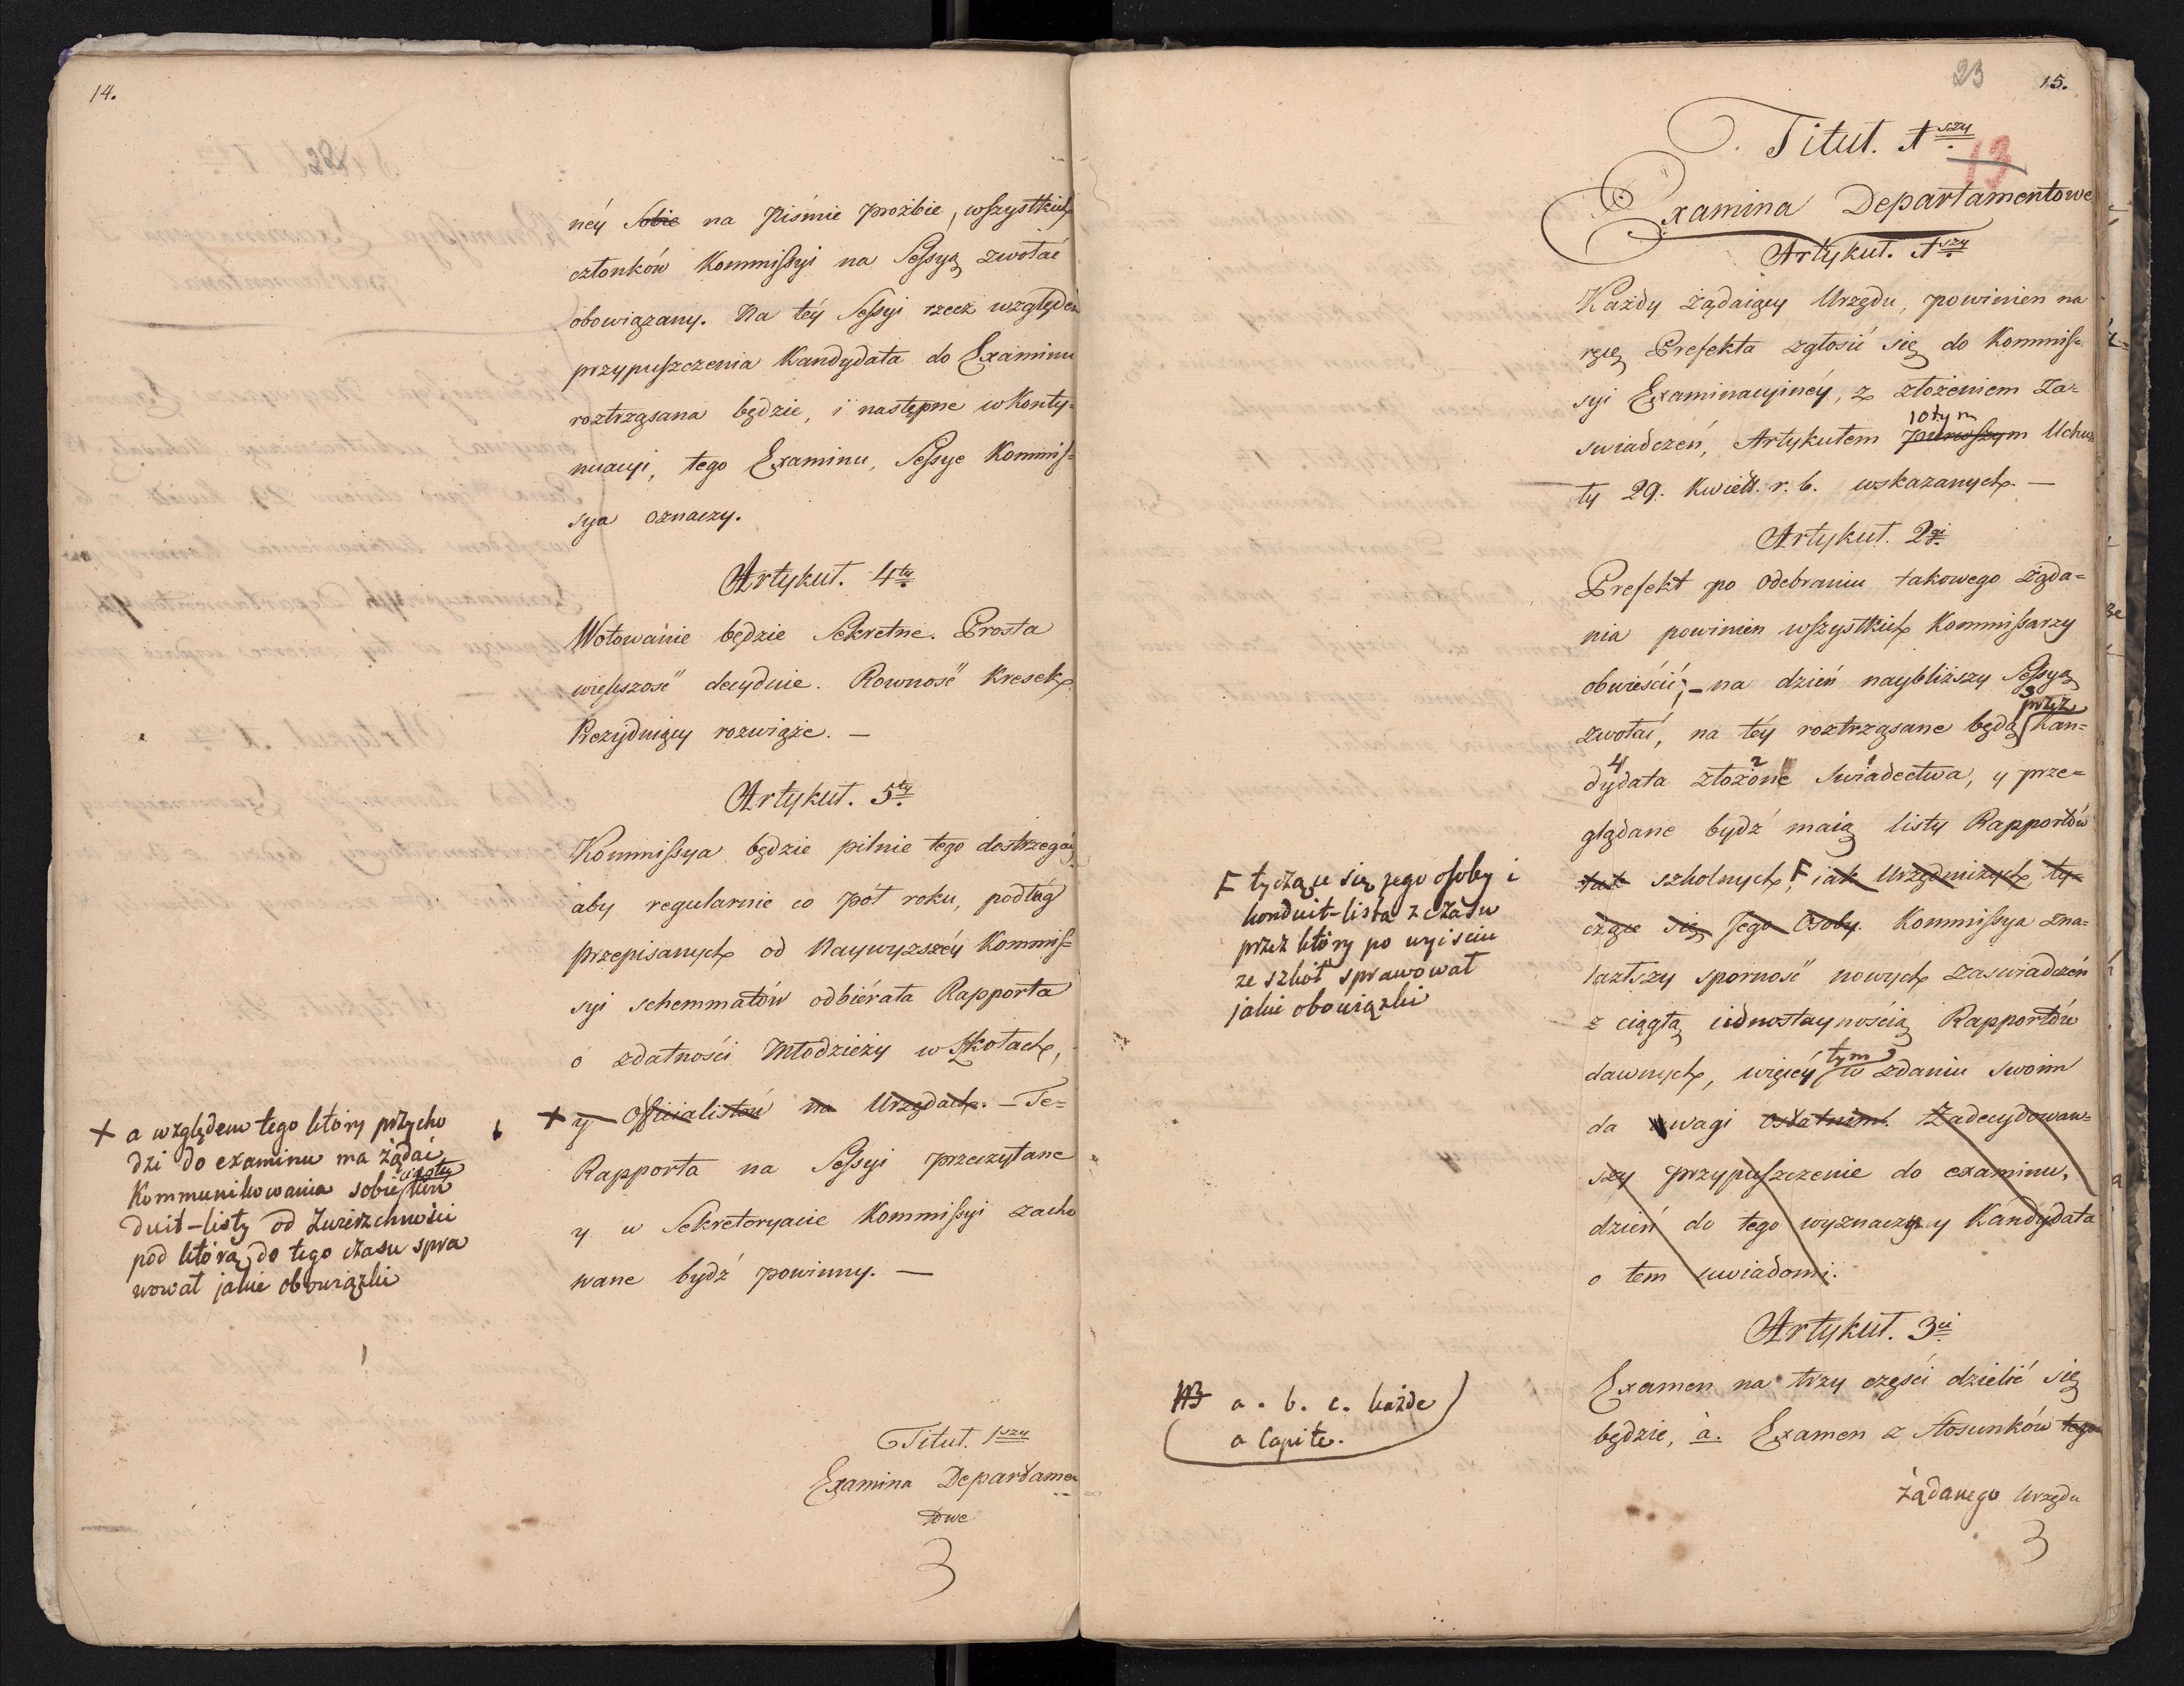 14.
néy Sobie na Piśmie prożbie, wszystkich
członków Kommissyi na Sessyą zwołać
obowiązany. Na téy Sessyi rzecz względem
przypuszczenia Kandydata do Examinu
roztrząsana będzie, i następne w Konty=
nuacyi, tego Examinu, Sessye Kommis=
sya oznaczy.
Artykuł. 4ty
Wotowanie będzie Sekretne. Prosta
większość decyduie. Rowność Kresek
Prezyduiący rozwiąże. —
Artykuł. 5ty
Kommissya będzie pilnie tego dostrzegać
aby regularnie co pół roku, podług
przepisanych od Naywyzszéy Kommis=
syi schemmatów odbiérała Rapporta
o zdatności Młodzieży w Szkołach,
+ y Officialistów na Urzędach. — Te=
Rapporta na Sessyi przeczytane
y w Sekretaryacie Kommissyi zacho
wane bydź powinny. —
+ a względem tego który przycho
dzi do examinu ma żądać
Kommunikowania sobie
duit-listy od Zwierzchności
pod którą do tego czasu spra
wował jakie obowiązki
Titul. 1szy
Examina Departamen
towe
3
23
15.
Titul. 1szy
13
Examina Departamentowe
Artykuł. 1szy
Każdy żądaiący Urzędu, powinien na
ręce Prefekta zgłosić się do Kommis=
syi Examinacyinéy, z złożeniem Za=
10tym
swiadczeń, Artykułem pierwszym Uchwa
ły 29. Kwiet. r. b. wskazanych. —
Artykuł. 2gi
Prefekt po odebraniu takowego żąda=
nia powinien wszystkich Kommissarzy
obwieścić, – na dzień naybliższy Sessyą
3 przez
zwołać, na téy roztrząsane będą Kan=
4 2 1
dydata złożone swiadectwa, y prze=
glądane bydź maią listy Rapportów
tak szkolnych, F iak Urzędniczych, ty=
czące się Jego Osoby. Kommissya zna=
lazłszy sporność nowych zaswiadczeń
z ciągłą iednostaynością Rapportów
tym
dawnych, więcéy w zdaniu swoim
da uwagi ostatnim. Zadecydowaw=
szy przypuszczenie do examinu,
dzień do tego wyznaczy y Kandydata
o tem uwiadomi.
F tyczące się jego osoby i
konduit-lista z czasu
przez który po wyjściu
ze szkół sprawował
jakie obowiązki
Artykuł. 3ci
Examen na trzy części dzielić się
będzie, a. Examen z Stosunków tego
NB a. b. c. każde
a Capite.
żądanego Urzędu
3